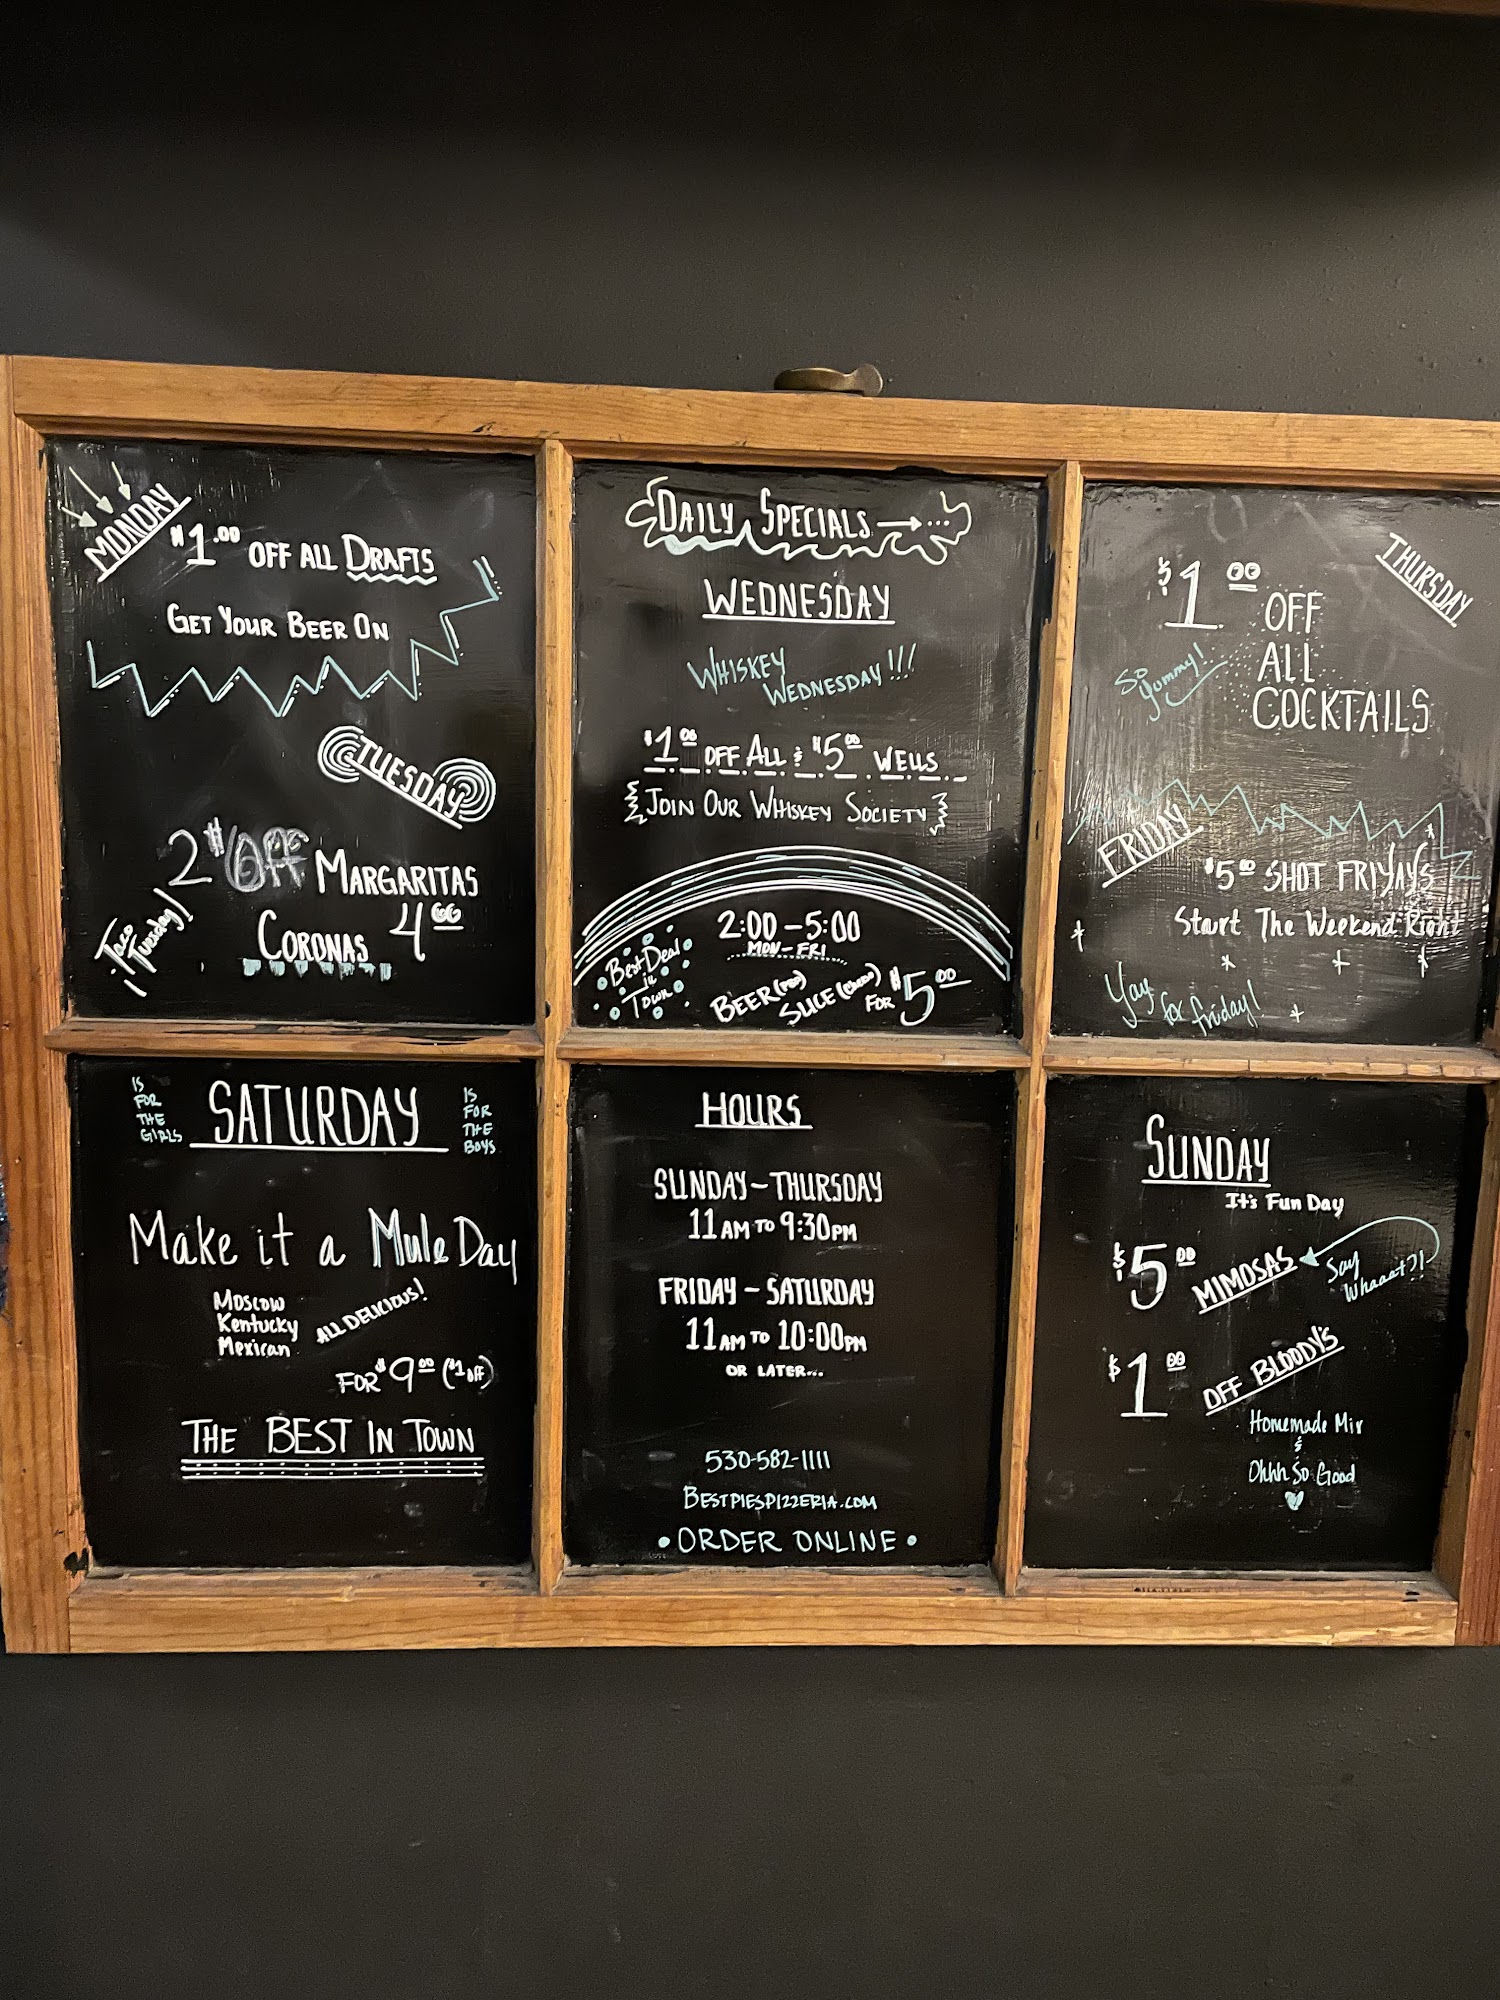 MONDAY
$1.00 OFF ALL DRAFTS
GET YOUR BEER ON
TUESDAY
2$ OFF MARGARITAS
CORONAS 4.00
¡Taco Tuesday!
DAILY SPECIALS
WEDNESDAY
WHISKEY
WEDNESDAY!!!
$1.00 OFF ALL & $5.00 WELLS
JOIN OUR WHISKEY SOCIETY
2:00-5:00
MON-FRI
Best Deal
in
Town
BEER
SLICE (Cheese)
FOR $5.00
THURSDAY
$1.00 OFF
ALL
COCKTAILS
So yummy!
FRIDAY
$5.00 SHOT FRIYAYS
Start The Weekend Right
Yay for friday!
IS
FOR
THE
GIRLS
SATURDAY
IS
FOR
THE
BOYS
Make it a Mule Day
Moscow
Kentucky
Mexican
ALL DELICIOUS!
FOR $9.00 ($1 off)
THE BEST IN TOWN
HOURS
SUNDAY-THURSDAY
11AM TO 9:30PM
FRIDAY-SATURDAY
11AM TO 10:00PM
OR LATER...
530-582-1111
BESTPIESPIZZERIA.COM
• ORDER ONLINE •
SUNDAY
It's Fun Day
$5.00 MIMOSAS
Say Whaaat?!
$1.00 OFF BLOODY'S
Homemade Mix
&
Ohhh So Good